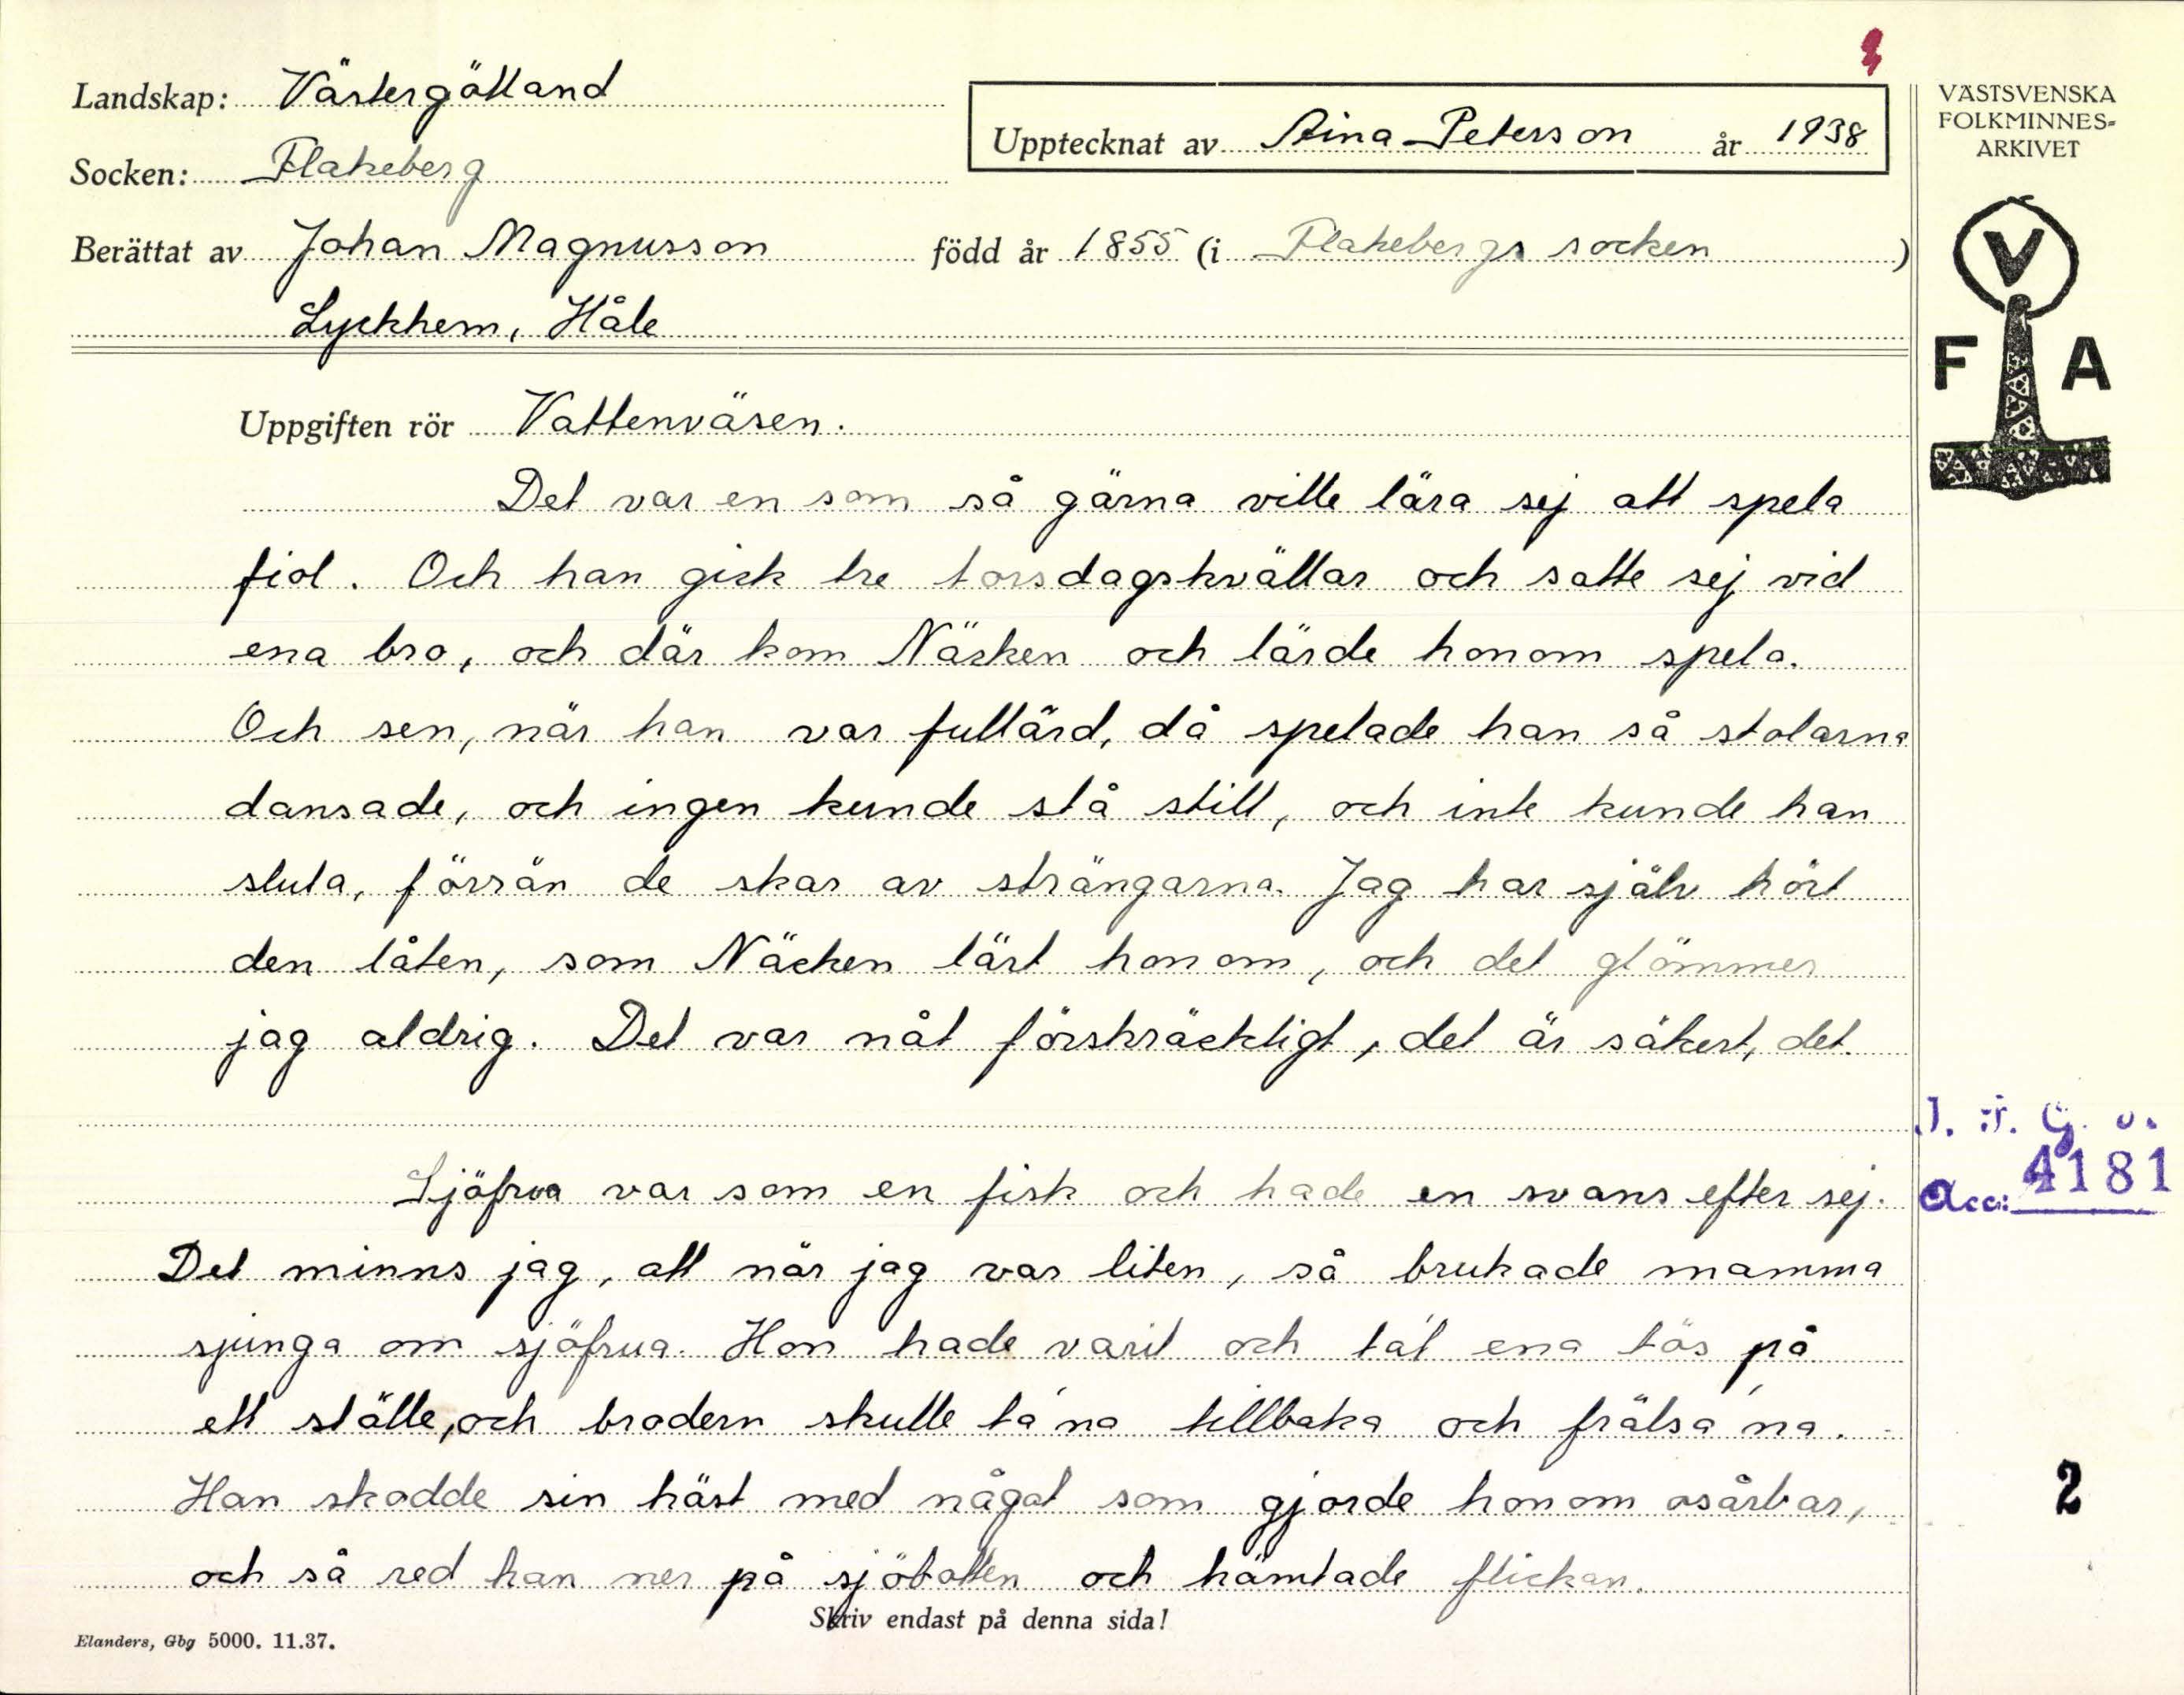 Landskap: Västergötland
Socken: Flakeberg
Upptecknat av Aina Peterson år 1938
Berättat av Johan Magnusson född år 1855 (i Flakebergs socken)
Lyckhem, Håle
VÄSTSVENSKA
FOLKMINNES-
ARKIVET
V
F A
Uppgiften rör Vattenväsen.
Det var en som så gärna ville lära sej att spela
fiol. Och han gick tre torsdagskvällar och satte sej vid
ena bro, och där kom Näcken och lärde honom spela.
Och sen, när han var fullärd, då spelade han så stolarna
dansade, och ingen kunde stå still, och inte kunde han
sluta, förrän de skar av strängarna. Jag har själv hört
den låten, som Näcken lärt honom, och det glömmer
jag aldrig. Det var nåt förskräckligt, det är säkert, det.
Sjöfrua var som en fisk och hade en svans efter sej.
Det minns jag, att när jag var liten, så brukade mamma
sjunga om sjöfrua. Hon hade varit och tát ena tös på
ett ställe, och brodern skulle ta'na tillbaka och frälsa'na.
Han skodde sin häst med något som gjorde honom osårbar,
och så red han ner på sjöbotten och hämtade flickan.
Acc: 4181
2
Skriv endast på denna sida!
Elanders, Gbg 5000. 11.37.